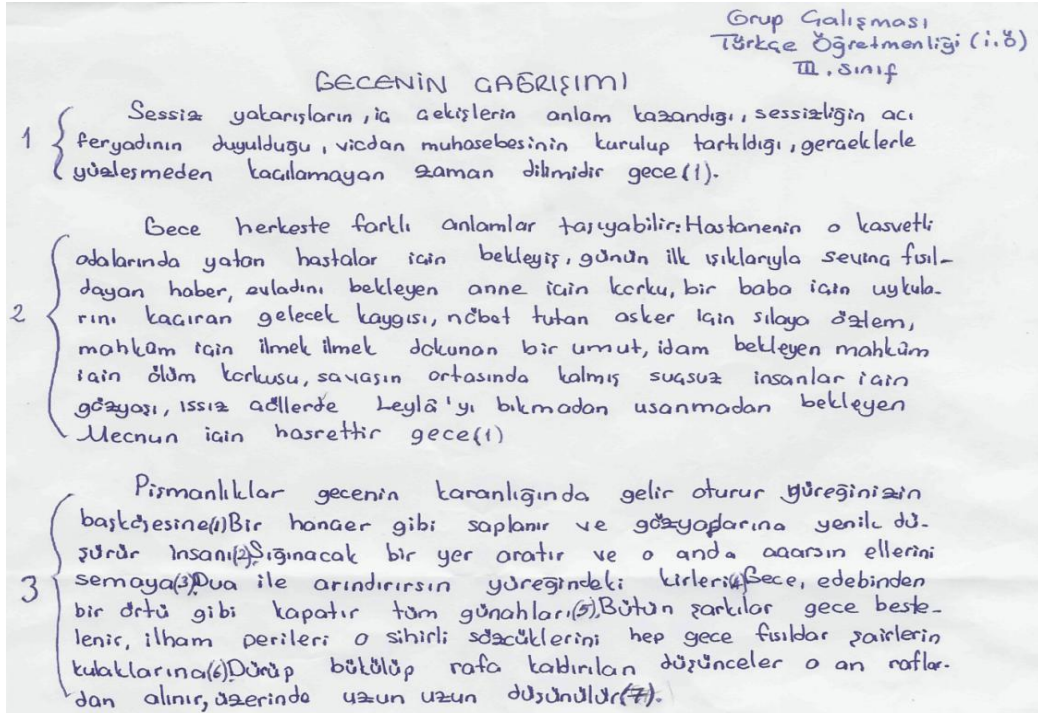 Grup Çalışması
Türkçe Öğretmenliği (i.ö)
III. sınıf
GECENİN ÇAĞRIŞIMI
Sessiz yakarışların, iç çekişlerin anlam kazandığı, sessizliğin acı
1 feryadının duyulduğu, vicdan muhasebesinin kurulup tartıldığı, gerçeklerle
yüzleşmeden kaçılamayan zaman dilimidir gece(1).
Gece herkeste farklı anlamlar taşıyabilir: Hastanenin o kasvetli
odalarında yatan hastalar için bekleyiş, günün ilk ışıklarıyla sevinç fısıl-
dayan haber, evladını bekleyen anne için korku, bir baba için uykula-
2 rını kaçıran gelecek kaygısı, nöbet tutan asker için sılaya özlem,
mahkûm için ilmek ilmek dokunan bir umut, idam bekleyen mahkûm
için ölüm korkusu, savaşın ortasında kalmış suçsuz insanlar için
gözyaşı, ıssız çöllerde Leylâ'yı bıkmadan usanmadan bekleyen
Mecnun için hasrettir gece(1)
Pişmanlıklar gecenin karanlığında gelir oturur yüreğinizin
başköşesine(1)Bir hançer gibi saplanır ve gözyaşlarına yenik dü-
şürür insanı(2).Sığınacak bir yer aratır ve o anda açarsın ellerini
3 semaya(3).Dua ile arındırırsın yüreğindeki kirleri(4)Gece, edebinden
bir örtü gibi kapatır tüm günahları(5).Bütün şarkılar gece beste-
lenir, ilham perileri o sihirli sözcüklerini hep gece fısıldar şairlerin
kulaklarına(6)Dürüp bükülüp rafa kaldırılan düşünceler o an raflar-
dan alınır, üzerinde uzun uzun düşünülür(7).